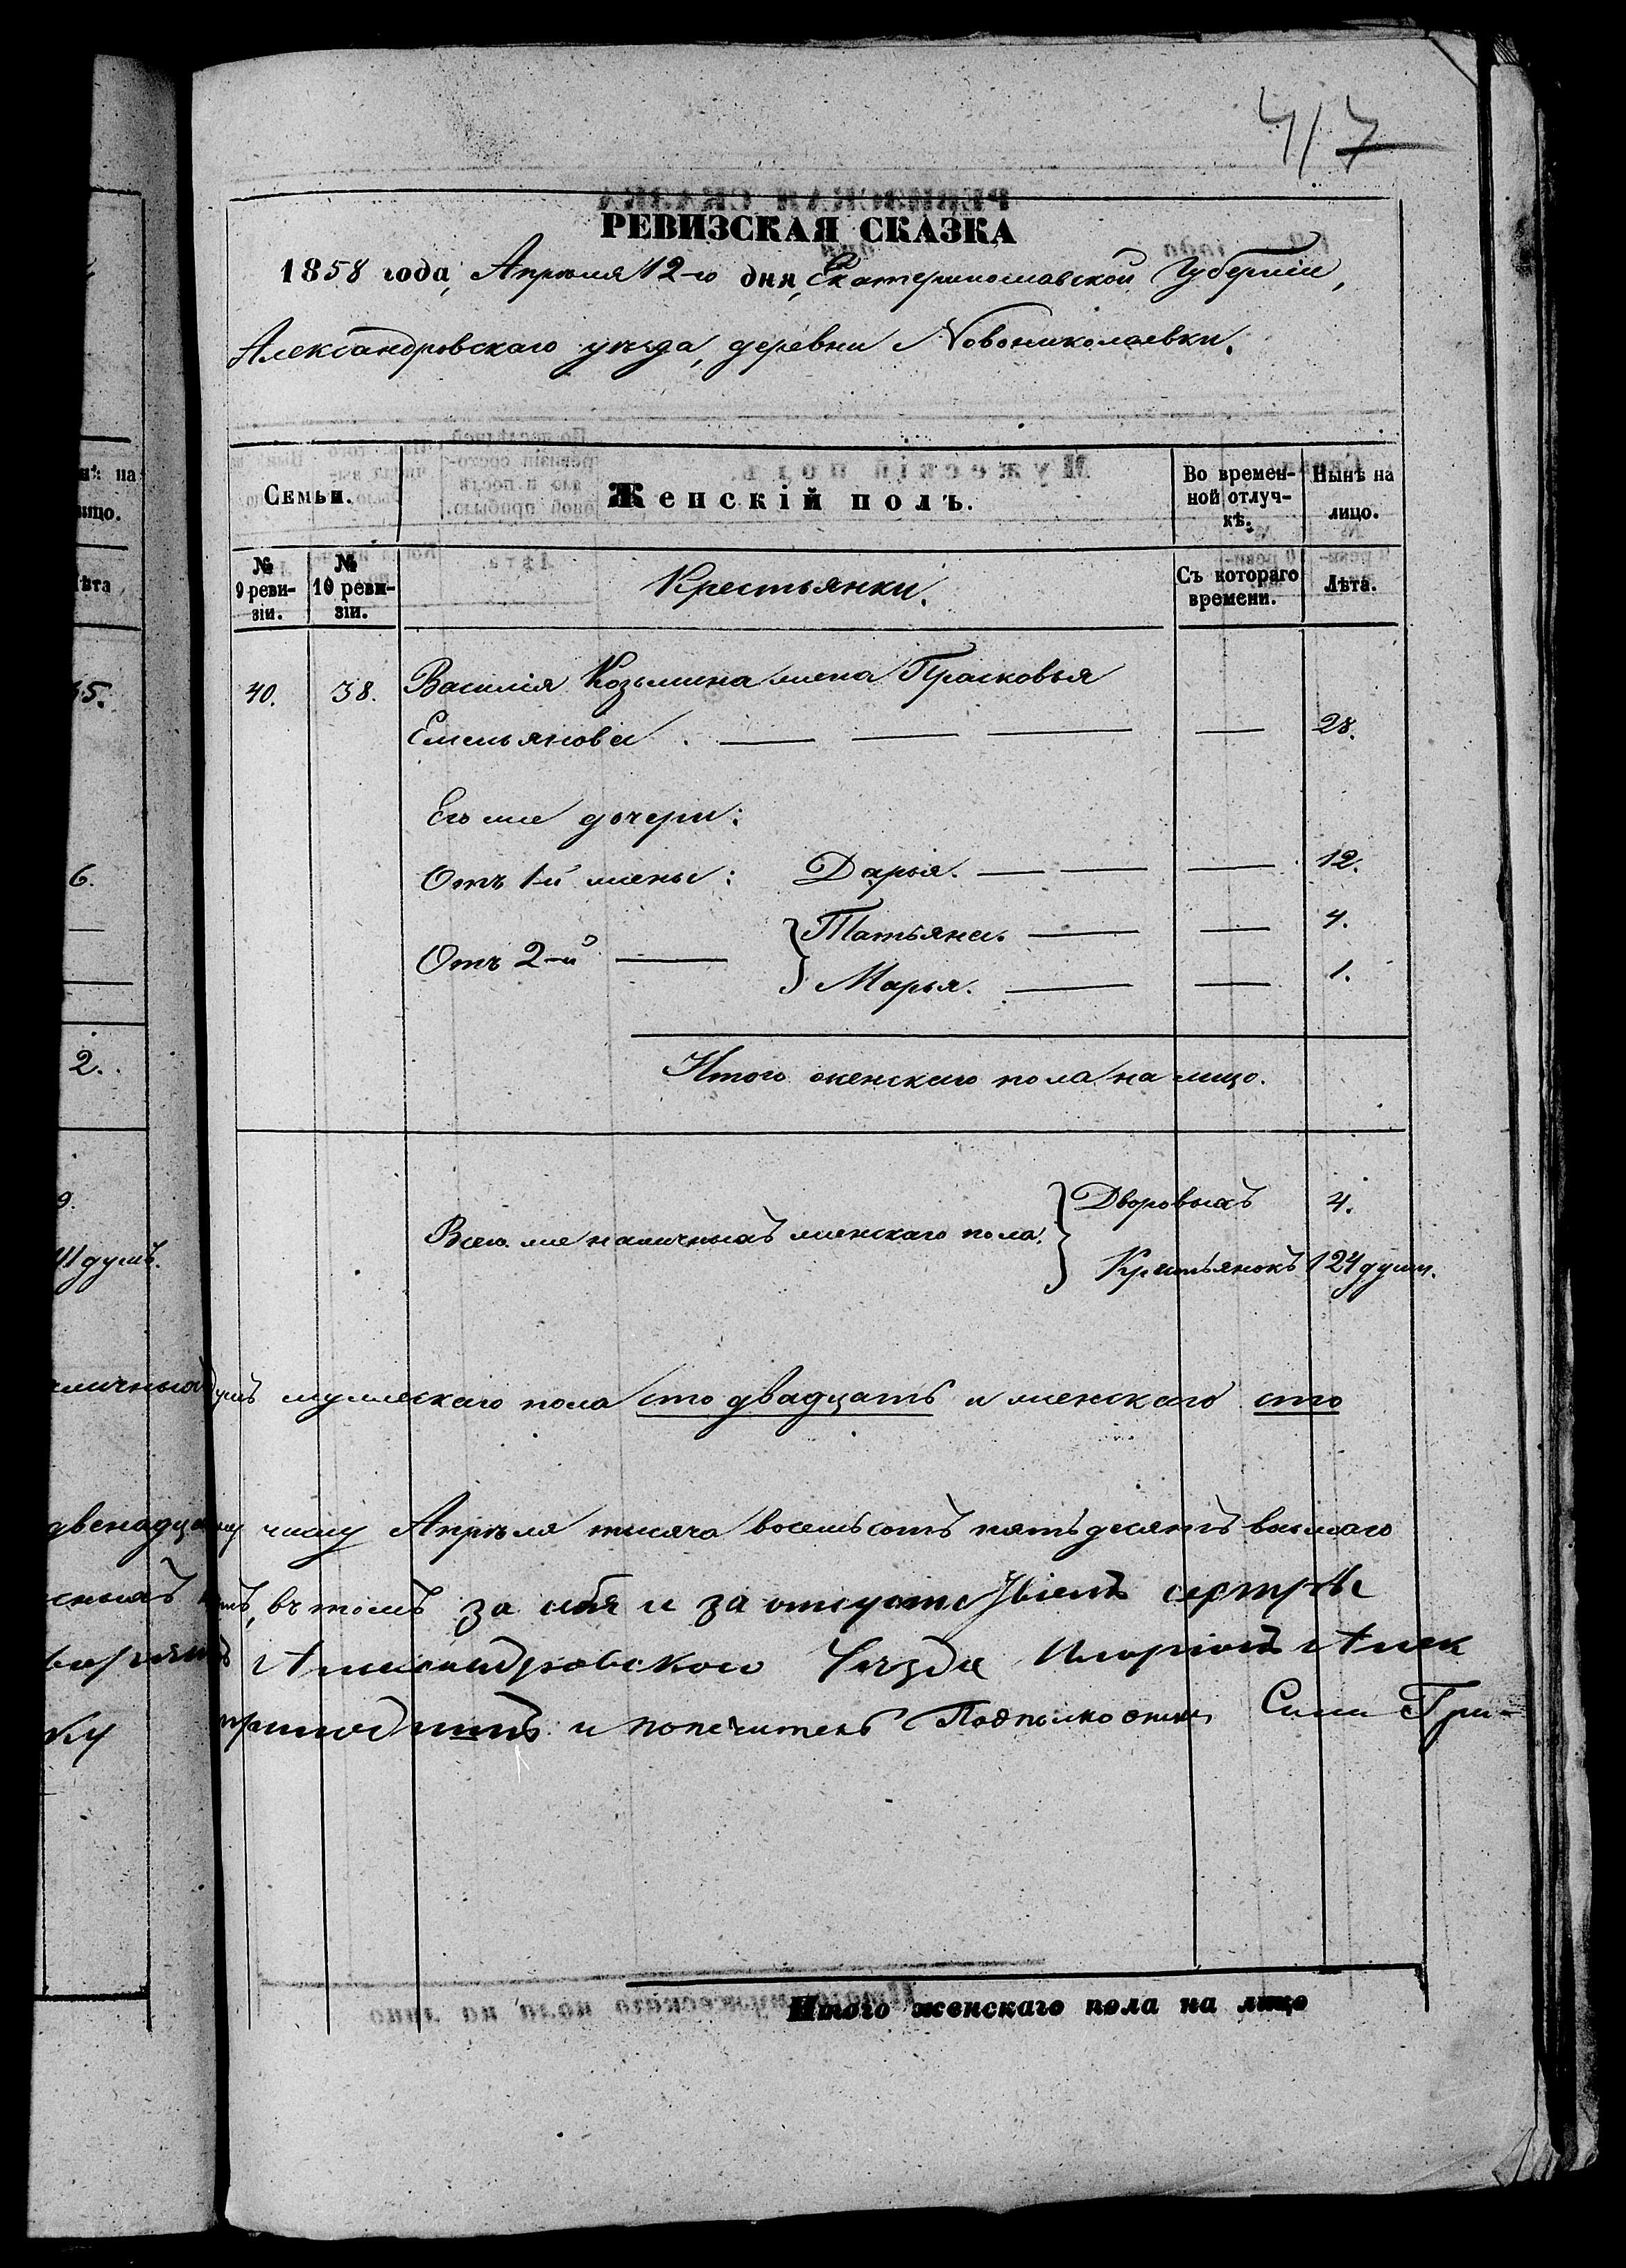 417
РЕВИЗСКАЯ СКАЗКА
1858 года, Апрѣля 12-го дня, Екатеринославской Губерніи,
Александровскаго уѣзда, деревни Новониколаевки.
Семьи.
Женскій полъ.
Во времен-
ной отлуч-
кѣ.
Нынѣ на
лицо.
№
9 реви-
зіи.
№
10 реви-
зіи.
Крестьянки.
Съ котораго
времени.
Лѣта.
40. 38. Василія Козьмина жена Прасковья
Емельянова. 28.
Его же дочери:
Отъ 1-й жены: Дарья. 12.
Отъ 2-й Татьяна. 4.
Марья. 1.
Итого женскаго пола на лицо.
Дворовыхъ 4.
Всего же наличныхъ женскаго пола.
Крестьянокъ 124 душ.
душъ мужескаго пола сто двадцать и женскаго сто
числу Апрѣля тысяча восемьсотъ пятьдесятъ восьмаго
въ томъ за себя и за сестры
Александровскаго Уѣзда
и попечитель Подполковникъ Гри-
Итого женскаго пола на лицо